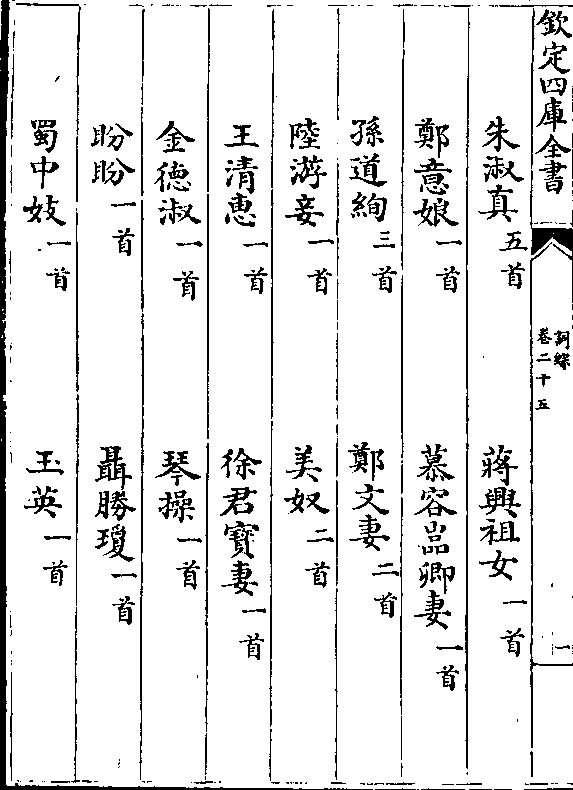 欽定四庫全書
詞綜
卷二十五
一
朱淑真五首 蔣興祖女一首
鄭意娘一首 慕容嵓卿妻一首
孫道絢三首 鄭文妻二首
陸游妾一首 美奴二首
王清惠一首 徐君寶妻一首
金德淑一首 琴操一首
盼盼一首 聶勝瓊一首
蜀中妓一首 玉英一首